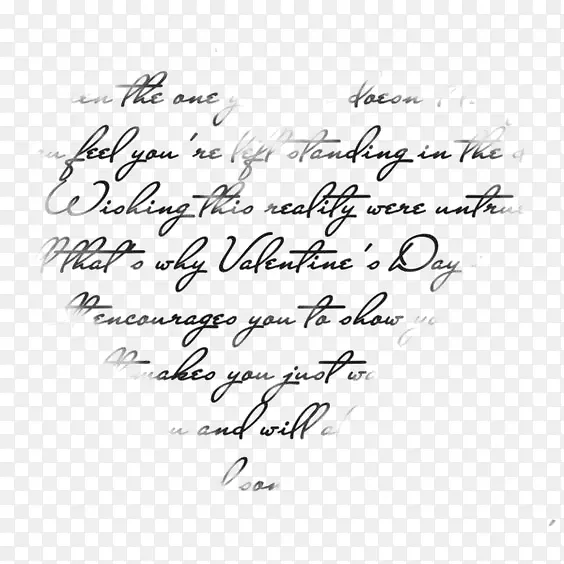 the one doesn
feel you're left standing in the
Wishing this reality were untrue
that's why Valentine's Day
encourages you to show
makes you just
and will